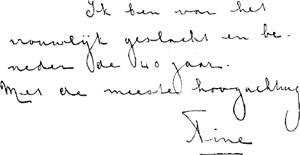 Ik ben van het
vrouwelijk geslacht en be-
neden de 40 jaar.
Met de meeste hoogachting
Tine